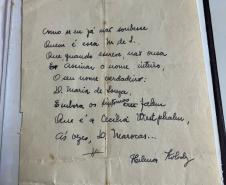 Como se eu já não soubesse
Quem é essa M de S.
Que quando escreve, não ousa
Assinar o nome inteiro,
O seu nome verdadeiro:
D. Maria de Souza,
Embora os me falem
Que é a Cecília
Às vezes, D. Marocas...
Helena Kolody